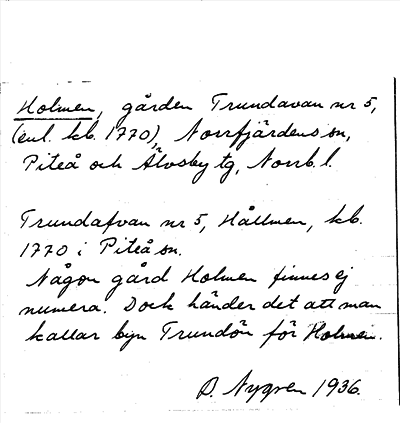 Holmen, gården Trundavan nr 5,
(enl. kb. 1770), Norrfjärdens sn,
Piteå och Älvsby tg, Norrb. l.
Trundafvan nr 5, Hållmen, kb.
1770 i Piteå sn.
Någon gård Holmen finnes ej
numera. Dock händer det att man
kallar byn Trundön för Holmen.
D. Nygren 1936.